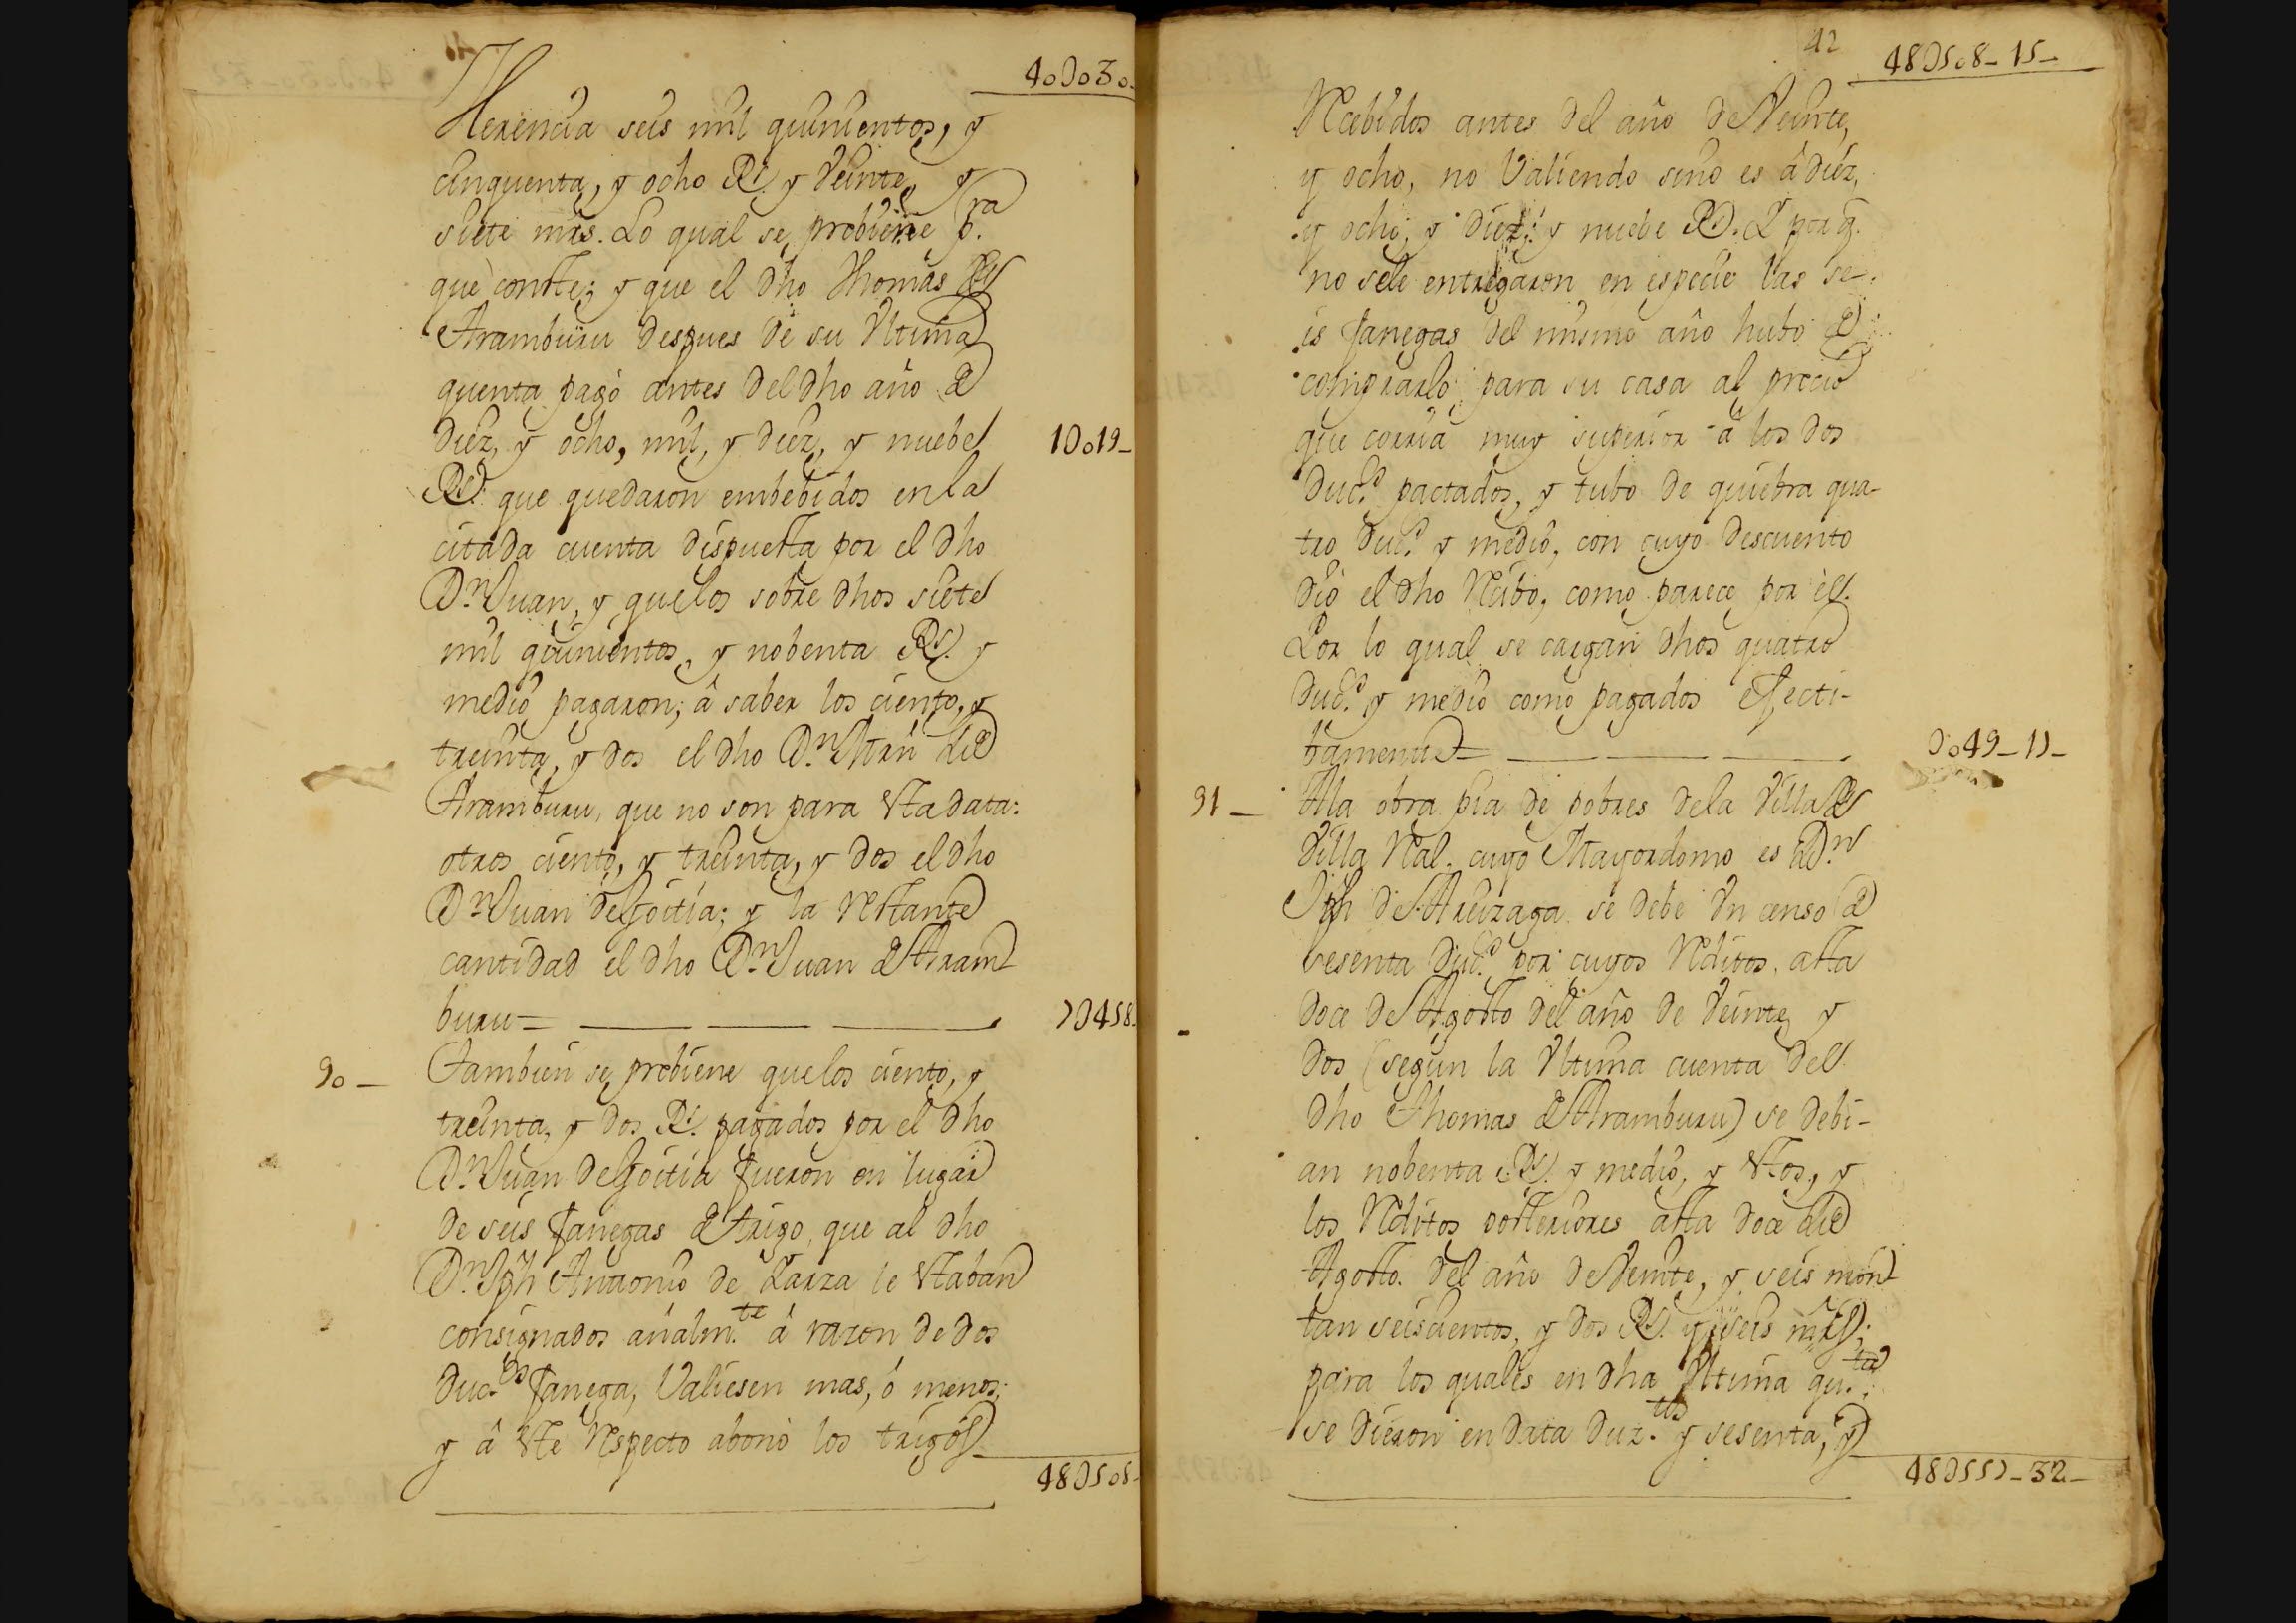 40Do30-
Herencia seis mil quinientos, y
cinquenta, y ocho Rs. y Veinte, y
siete mrs. Lo qual se probiene p.ra
que conste; y que el dho Thomas de
Aramburu despues de su Vltima
quenta pagò antes del dho año de
diez, y ocho, mil, y diez, y nuebe 1Do19-
Rs. que quedaron embebidos en la
citada cuenta dispuesta por el dho
Dn. Juan, y que los sobre dhos siete
mil quinientos, y nobenta Rs. y
medio pagaron; â saber los ciento, y
treinta, y dos el dho Dn. Mrn de
Aramburu, que no son para esta data:
otros ciento, y treinta, y dos el dho
Dn. Juan de Goitia; y la restante
cantidad el dho Dn. Juan de Aram
buru= 7D458-
90- Tambien se probiene que los ciento, y
treinta, y dos Rs. pagados por el dho
Dn. Juan de Goitia fueron en lugar
de seis fanegas de trigo, que al dho
Dn. Jph Antonio de Larza le estaban
consignados añalm.te â razon de dos
duc.os fanega, Valiesen mas, ó menos;
y â este respecto abonò los trigos
48D508-
42
48D508-15-
recibidos antes del año de Veinte,
y ocho, no Valiendo sino es â diez,
y ocho, y diez, y nuebe Rs. Y por q.
no sele entregaron en especie las se-
is fanegas del mismo año hubo de
comprarlo para su casa al precio
que corria muy superior â los dos
duc.s pactados, y tubo de quiebra qua-
tro duc.s y medio, con cuyo descuento
diò el dho recibo, como parece por èl.
Por lo qual se cargan dhos quatro
duc.s y medio como pagados efecti-
bamente= Do49-17-
91- Ala obra pia de pobres dela Villa de
Villa Real. cuyo Mayordomo es Dn.
Jph de Areizaga se debe Vn censo de
sesenta duc.s por cuyos reditos, asta
doce de Agosto del año de Veinte, y
dos (segun la Vltima cuenta del
dho Thomas de Aramburu) se debi-
an nobenta Rs. y medio, y estos, y
los reditos posteriores asta doce de
Agosto. del año de Veinte, y seis mon
tan seiscientos, y dos Rs. y seis mrs;
para los quales en dha Vltima qu.ta
se dieron en data duz.tos y sesenta, y
48D557-32-